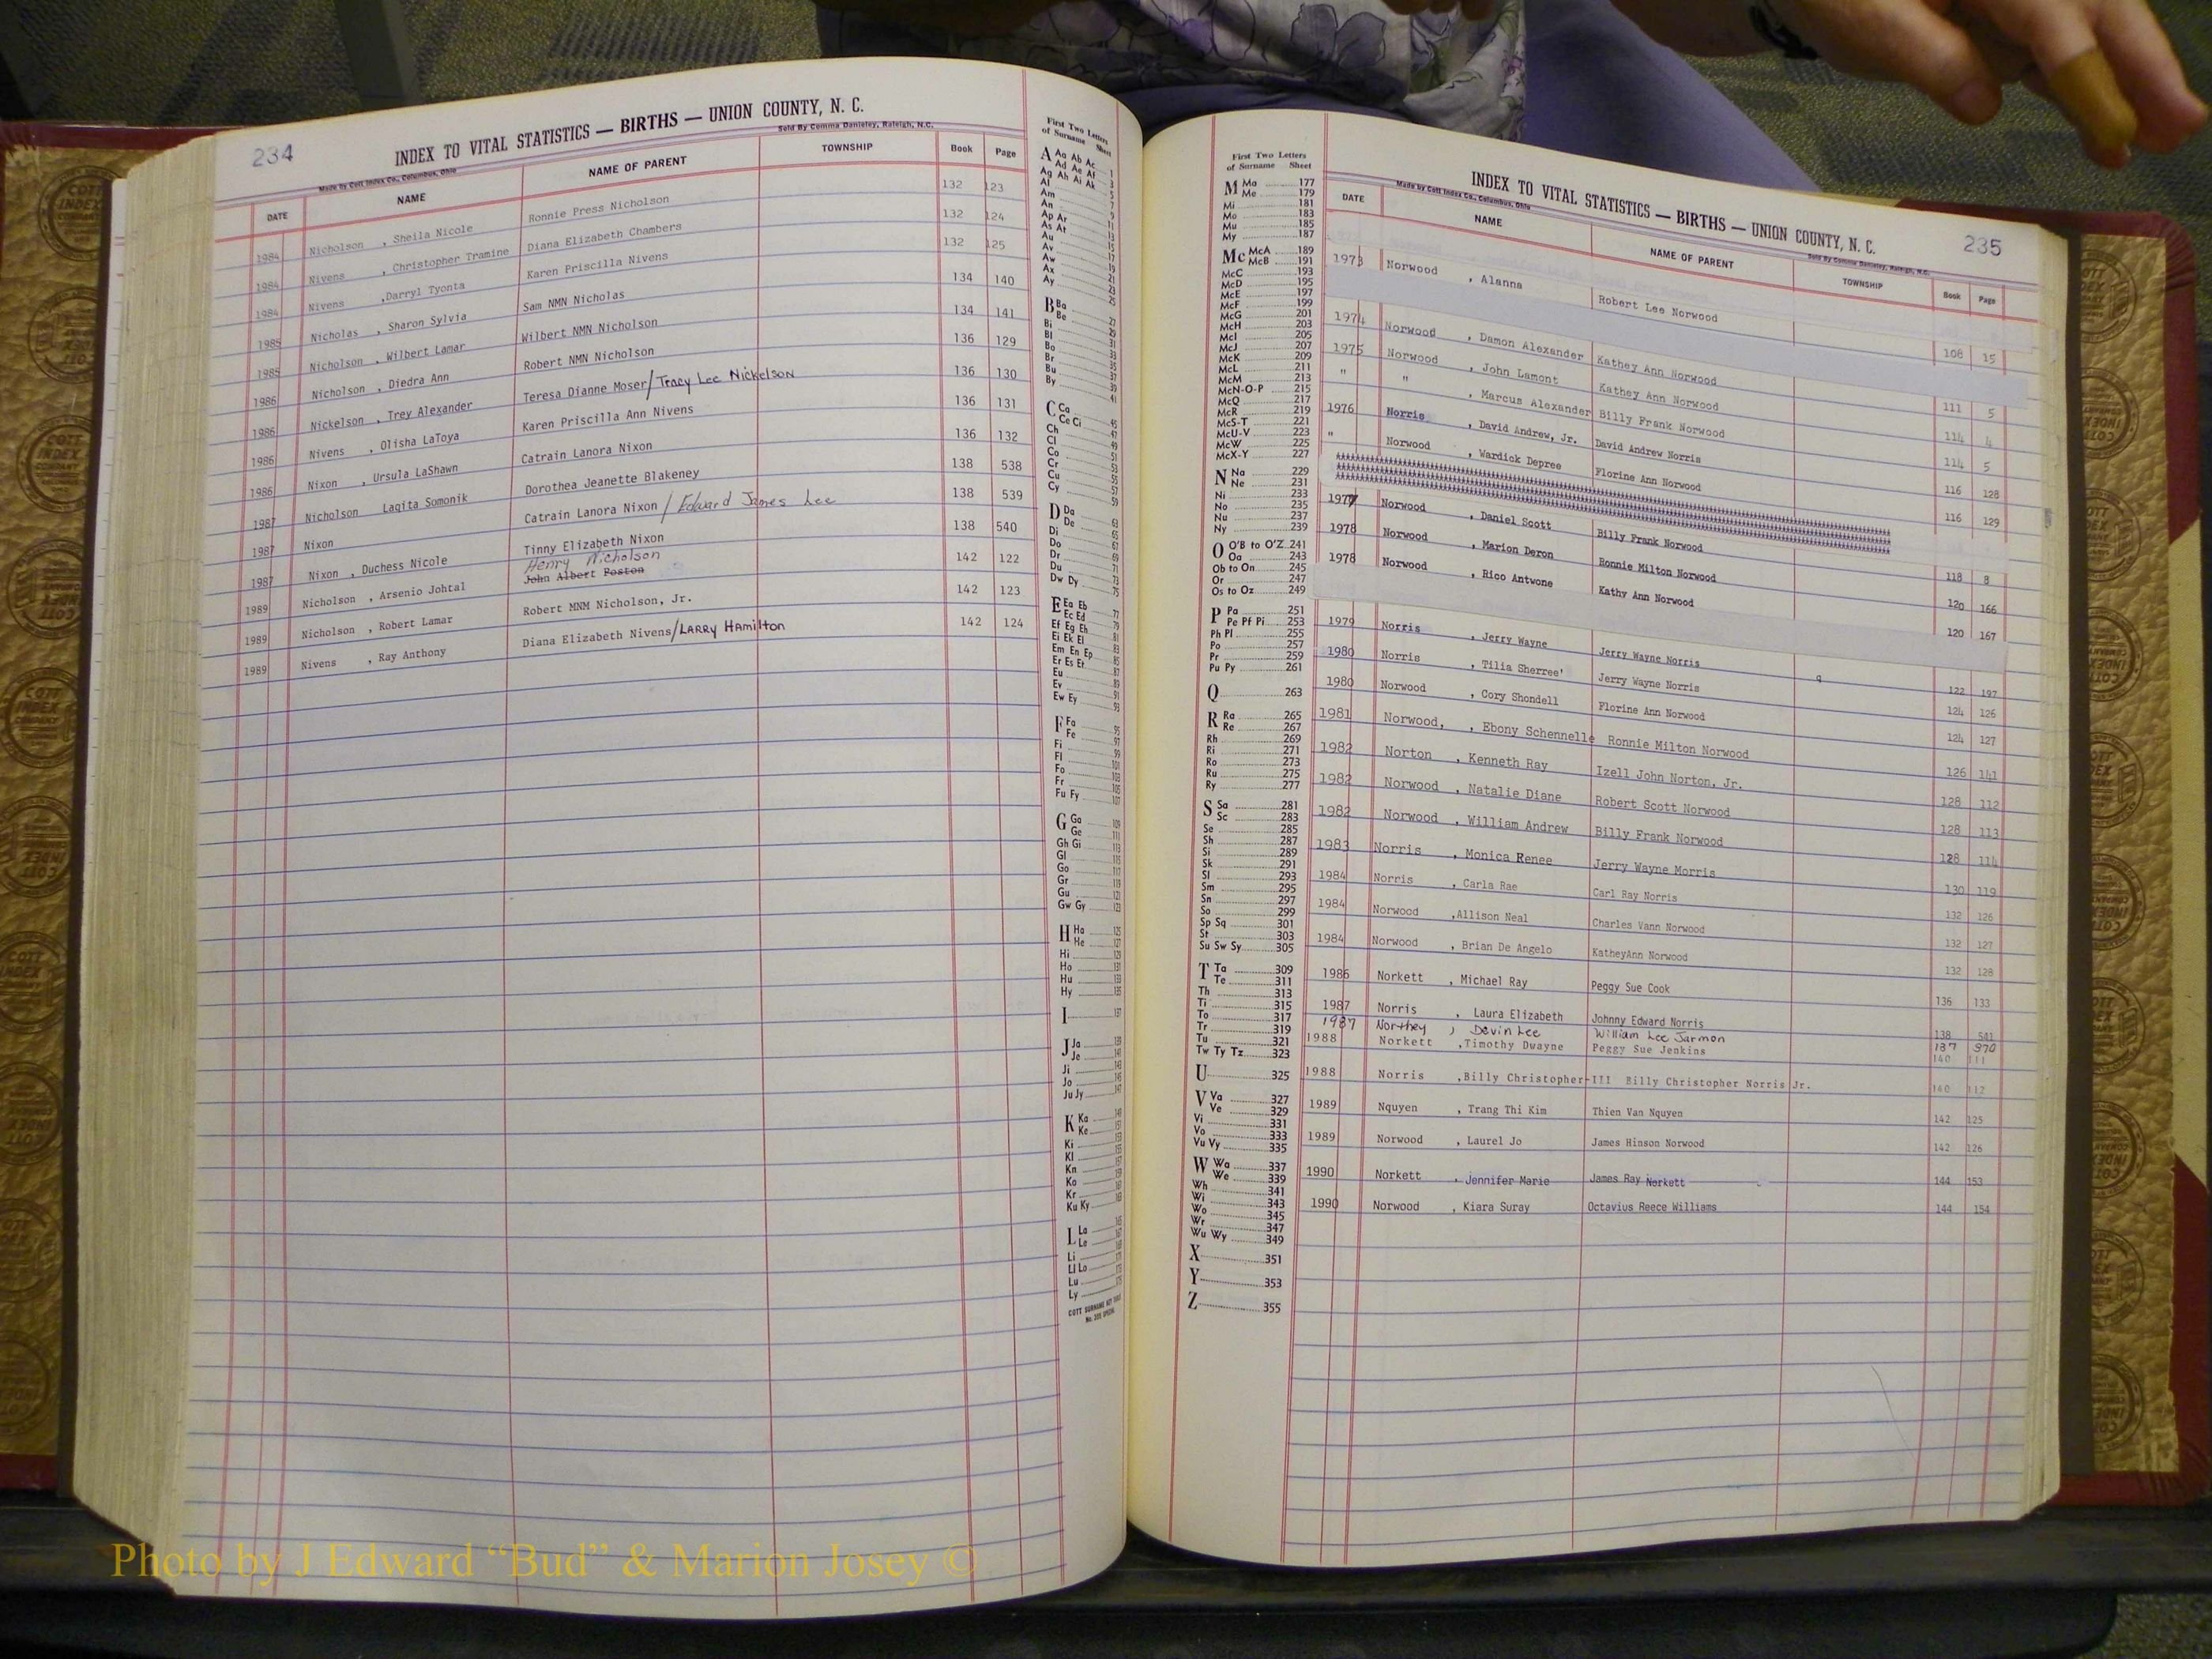 234
INDEX TO VITAL STATISTICS — BIRTHS — UNION COUNTY, N. C.
Made by Cott Index Co., Columbus, Ohio Sold By Comma Danieley, Raleigh, N.C.
DATE NAME NAME OF PARENT TOWNSHIP Book Page
1984 Nicholson , Sheila Nicole Ronnie Press Nicholson 132 123
1984 Nivens , Christopher Tramine Diana Elizabeth Chambers 132 124
1984 Nivens ,Darryl Tyonta Karen Priscilla Nivens 132 125
1985 Nicholas , Sharon Sylvia Sam NMN Nicholas 134 140
1985 Nicholson , Wilbert Lamar Wilbert NMN Nicholson 134 141
1986 Nicholson , Diedra Ann Robert NMN Nicholson 136 129
1986 Nickelson , Trey Alexander Teresa Dianne Moser/Tracy Lee Nickelson 136 130
1986 Nivens , Olisha LaToya Karen Priscilla Ann Nivens 136 131
1986 Nixon , Ursula LaShawn Catrain Lanora Nixon 136 132
1987 Nicholson Laqita Somonik Dorothea Jeanette Blakeney 138 538
1987 Nixon Catrain Lanora Nixon / Edward James Lee 138 539
1987 Nixon , Duchess Nicole Tinny Elizabeth Nixon 138 540
Henry Nicholson
1989 Nicholson , Arsenio Johtal John Albert Poston 142 122
1989 Nicholson , Robert Lamar Robert MNM Nicholson, Jr. 142 123
1989 Nivens , Ray Anthony Diana Elizabeth Nivens/LARRY HAmilton 142 124
First Two Letters
of Surname Sheet
A Aa Ab Ac 1
Ad Ae Af 3
Ag Ah Ai Ak 5
Al
Am
An
Ap Ar
As At
Au
Av
Aw
Ax
Ay
B Ba
Be
Bi
Bl
Bo
Br
Bu
By
C Ca
Ce Ci
Ch
Cl
Co
Cr
Cu
Cy
D Da
De
Di
Do
Dr
Du
Dw Dy
E Ea Eb
Ec Ed
Ef Eg Eh
Ei Ek El
Em En Ep
Er Es Et
Eu
Ev
Ew Ey
F Fa
Fe
Fi
Fl
Fo
Fr
Fu Fy
G Ga
Ge
Gh Gi
Gl
Go
Gr
Gu
Gw Gy
H Ha
He
Hi
Ho
Hu
Hy
I
J Ja
Je
Ji
Jo
Ju Jy
K Ka
Ke
Ki
Kl
Kn
Ko
Kr
Ku Ky
L La
Le
Li
Ll Lo
Lu
Ly
First Two Letters
of Surname Sheet
M Ma 177
Me 179
Mi 181
Mo 183
Mu 185
My 187
Mc McA 189
McB 191
McC 193
McD 195
McE 197
McF 199
McG 201
McH 203
McI 205
McJ 207
McK 209
McL 211
McM 213
McN-O-P 215
McQ 217
McR 219
McS-T 221
McU-V 223
McW 225
McX-Y 227
N Na 229
Ne 231
Ni 233
No 235
Nu 237
Ny 239
O O'B to O'Z 241
Oa 243
Ob to On 245
Or 247
Os to Oz 249
P Pa 251
Pe Pf Pi 253
Ph Pl 255
Po 257
Pr 259
Pu Py 261
Q 263
R Ra 265
Re 267
Rh 269
Ri 271
Ro 273
Ru 275
Ry 277
S Sa 281
Sc 283
Se 285
Sh 287
Si 289
Sk 291
Sl 293
Sm 295
Sn 297
So 299
Sp Sq 301
St 303
Su Sw Sy 305
T Ta 309
Te 311
Th 313
Ti 315
To 317
Tr 319
Tu 321
Tw Ty Tz 323
U 325
V Va 327
Ve 329
Vi 331
Vo 333
Vu Vy 335
W Wa 337
We 339
Wh 341
Wi 343
Wo 345
Wr 347
Wu Wy 349
X 351
Y 353
Z 355
INDEX TO VITAL STATISTICS — BIRTHS — UNION COUNTY, N. C. 235
Made by Cott Index Co., Columbus, Ohio Sold By Comma Danieley, Raleigh, N.C.
DATE NAME NAME OF PARENT TOWNSHIP Book Page
1973 Norwood , Alanna Robert Lee Norwood 108 15
1974 Norwood , Damon Alexander Kathey Ann Norwood 111 5
1975 Norwood , John Lamont Kathey Ann Norwood 114 4
" " , Marcus Alexander Billy Frank Norwood 114 5
1976 Norris , David Andrew, Jr. David Andrew Norris 116 128
" Norwood , Wardick Depree Florine Ann Norwood 116 129
1977 Norwood , Daniel Scott Billy Frank Norwood 118 8
1978 Norwood , Marion Deron Ronnie Milton Norwood 120 166
1978 Norwood , Rico Antwone Kathy Ann Norwood 120 167
1979 Norris , Jerry Wayne Jerry Wayne Norris 122 197
1980 Norris , Tilia Sherree' Jerry Wayne Norris 124 126
1980 Norwood , Cory Shondell Florine Ann Norwood 124 127
1981 Norwood, , Ebony Schennelle Ronnie Milton Norwood 126 141
1982 Norton , Kenneth Ray Izell John Norton, Jr. 128 112
1982 Norwood , Natalie Diane Robert Scott Norwood 128 113
1982 Norwood , William Andrew Billy Frank Norwood 128 114
1983 Norris , Monica Renee Jerry Wayne Morris 130 119
1984 Norris , Carla Rae Carl Ray Norris 132 126
1984 Norwood ,Allison Neal Charles Vann Norwood 132 127
1984 Norwood , Brian De Angelo KatheyAnn Norwood 132 128
1986 Norkett , Michael Ray Peggy Sue Cook 136 133
1987 Norris , Laura Elizabeth Johnny Edward Norris 138 541
1987 Northey , Devin Lee William Lee Jarmon 137 970
1988 Norkett ,Timothy Dwayne Peggy Sue Jenkins 140 111
1988 Norris ,Billy Christopher-III Billy Christopher Norris Jr. 140 112
1989 Nquyen , Trang Thi Kim Thien Van Nquyen 142 125
1989 Norwood , Laurel Jo James Hinson Norwood 142 126
1990 Norkett , Jennifer Marie James Ray Norkett 144 153
1990 Norwood , Kiara Suray Octavius Reece Williams 144 154
Photo by J Edward “Bud” & Marion Josey ©